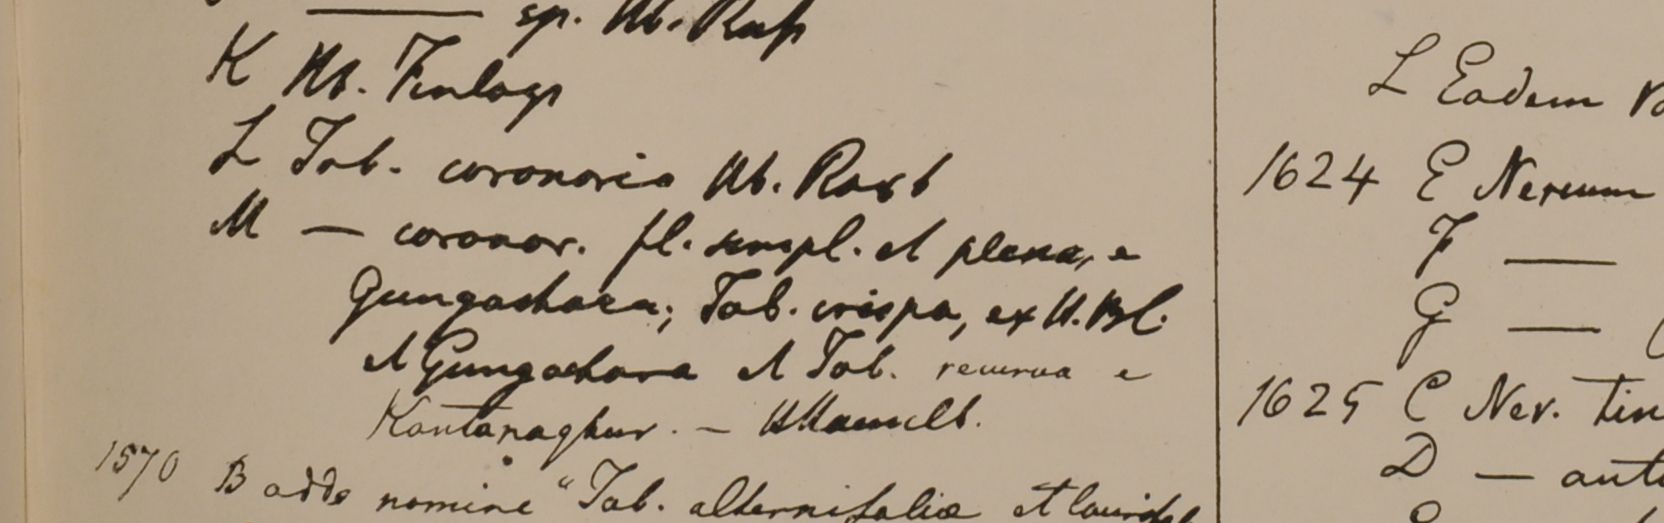 sp. Hb. Roxb
K Hb. Finlays
L Tab. coronaria Hb. Roxb
M — coronar. fl. simpl. et plena, e
Gungachara; Tab. crispa, ex H. Bl.
et Gungachora et Tab. recurva e
Kantanaghur. — HHamilt.
1570 B adde nomine "Tab. alternifoliae et laurifol
L Eadem
1624 E Nereum
F —
G —
1625 C Ner. tin
D —